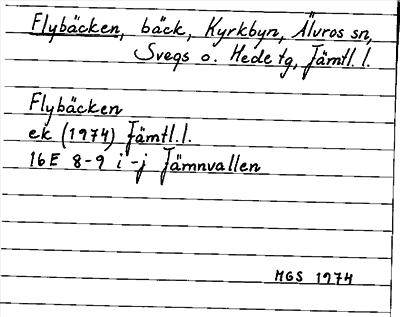 Flybäcken, bäck, Kyrkbyn, Älvros sn,
Svegs o. Hede tg, Jämtl. l.
Flybäcken
ek (1974) Jämtl. l.
16E 8-9 i-j Jämnvallen
MGS 1974